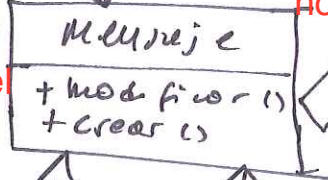 Mensaje
+ modificar ()
+ crear ()